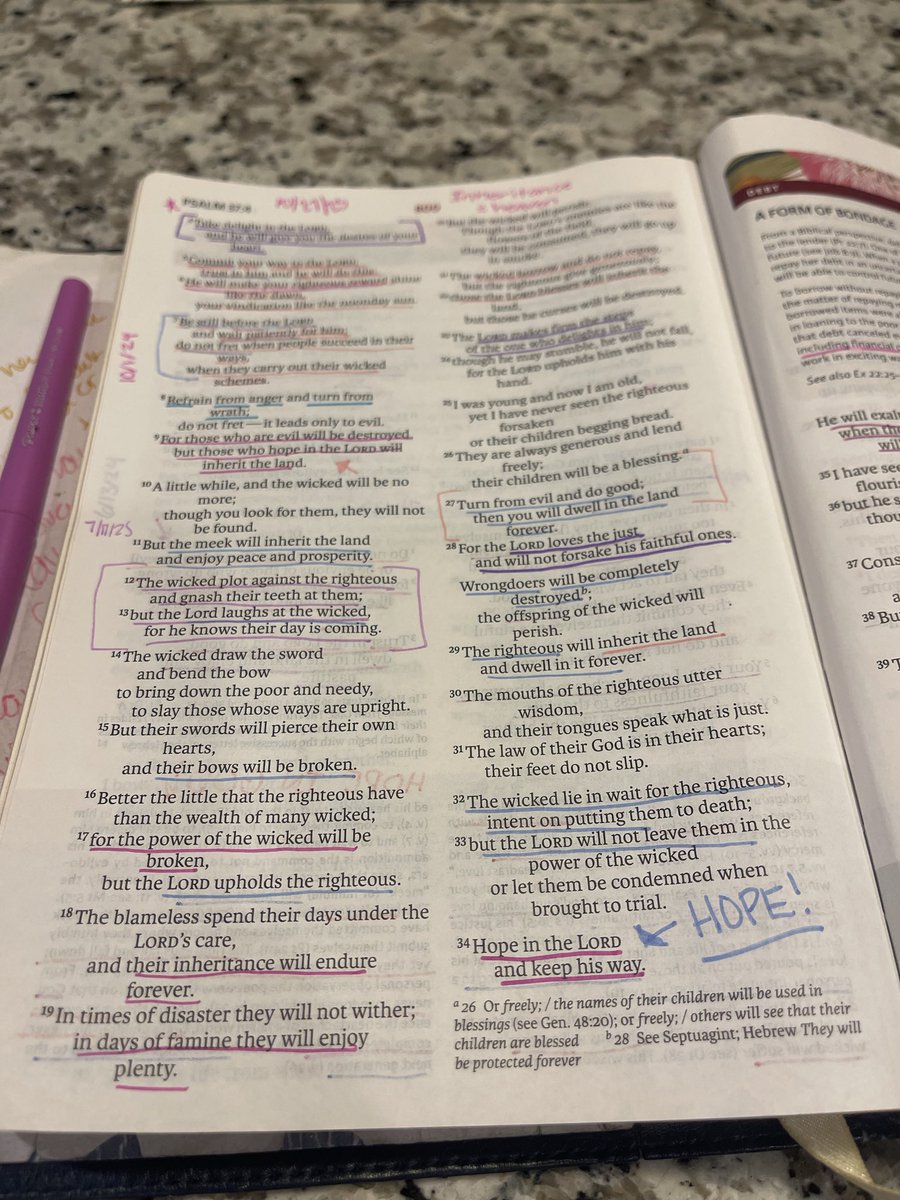 PSALM 37:4
10/27/
609
Inheritance
Take delight in the LORD,
and he will give you the desires of your
heart.
5 Commit your way to the LORD;
trust in him and he will do this:
6 He will make your righteous reward shine
like the dawn,
your vindication like the noonday sun.
7 Be still before the LORD
and wait patiently for him;
do not fret when people succeed in their
ways,
when they carry out their wicked
schemes.
10/1/24
8 Refrain from anger and turn from
wrath;
do not fret—it leads only to evil.
9 For those who are evil will be destroyed,
but those who hope in the LORD will
inherit the land.
6/13/24
7/11/25
10 A little while, and the wicked will be no
more;
though you look for them, they will not
be found.
11 But the meek will inherit the land
and enjoy peace and prosperity.
12 The wicked plot against the righteous
and gnash their teeth at them;
13 but the Lord laughs at the wicked,
for he knows their day is coming.
14 The wicked draw the sword
and bend the bow
to bring down the poor and needy,
to slay those whose ways are upright.
15 But their swords will pierce their own
hearts,
and their bows will be broken.
16 Better the little that the righteous have
than the wealth of many wicked;
17 for the power of the wicked will be
broken,
but the LORD upholds the righteous.
18 The blameless spend their days under the
LORD's care,
and their inheritance will endure
forever.
19 In times of disaster they will not wither;
in days of famine they will enjoy
plenty.
20 But the wicked will perish:
Though the LORD's enemies are like the
flowers of the field,
they will be consumed, they will go up
in smoke.
21 The wicked borrow and do not repay,
but the righteous give generously;
22 those the LORD blesses will inherit the
land,
but those he curses will be destroyed.
23 The LORD makes firm the steps
of the one who delights in him;
24 though he may stumble, he will not fall,
for the LORD upholds him with his
hand.
25 I was young and now I am old,
yet I have never seen the righteous
forsaken
or their children begging bread.
26 They are always generous and lend
freely;
their children will be a blessing.a
27 Turn from evil and do good;
then you will dwell in the land
forever.
28 For the LORD loves the just
and will not forsake his faithful ones.
Wrongdoers will be completely
destroyedb;
the offspring of the wicked will
perish.
29 The righteous will inherit the land
and dwell in it forever.
30 The mouths of the righteous utter
wisdom,
and their tongues speak what is just.
31 The law of their God is in their hearts;
their feet do not slip.
32 The wicked lie in wait for the righteous,
intent on putting them to death;
33 but the LORD will not leave them in the
power of the wicked
or let them be condemned when
brought to trial.
HOPE!
34 Hope in the LORD
and keep his way.
a 26 Or freely; / the names of their children will be used in
blessings (see Gen. 48:20); or freely; / others will see that their
children are blessed b 28 See Septuagint; Hebrew They will
be protected forever
DEBT
A FORM OF BONDAGE
To borrow without
the matter of repaying
borrowed items were
in loaning to the poor
that debt canceled
including financial
work in exciting
See also Ex 22:25-
He will exal
when the
will
35 I have see
flouri
36 but he s
thou
37 Cons
a
38 Bu
39 T